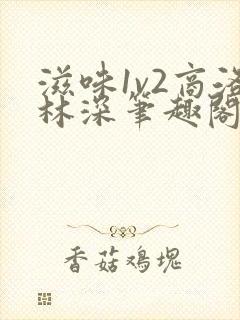 滋味1v2高洛
林深笔趣阁
香菇鸡块